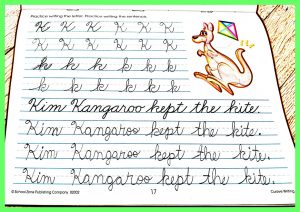 Practice writing the letter. Practice writing the sentence.
K K K K K K K
K K K K K K K
k k k k k k
k k k k k k
Kim Kangaroo kept the kite.
Kim Kangaroo kept the kite.
Kim Kangaroo kept the kite.
Kim Kangaroo kept the kite.
© School Zone Publishing Company 02002
17
Cursive Writing